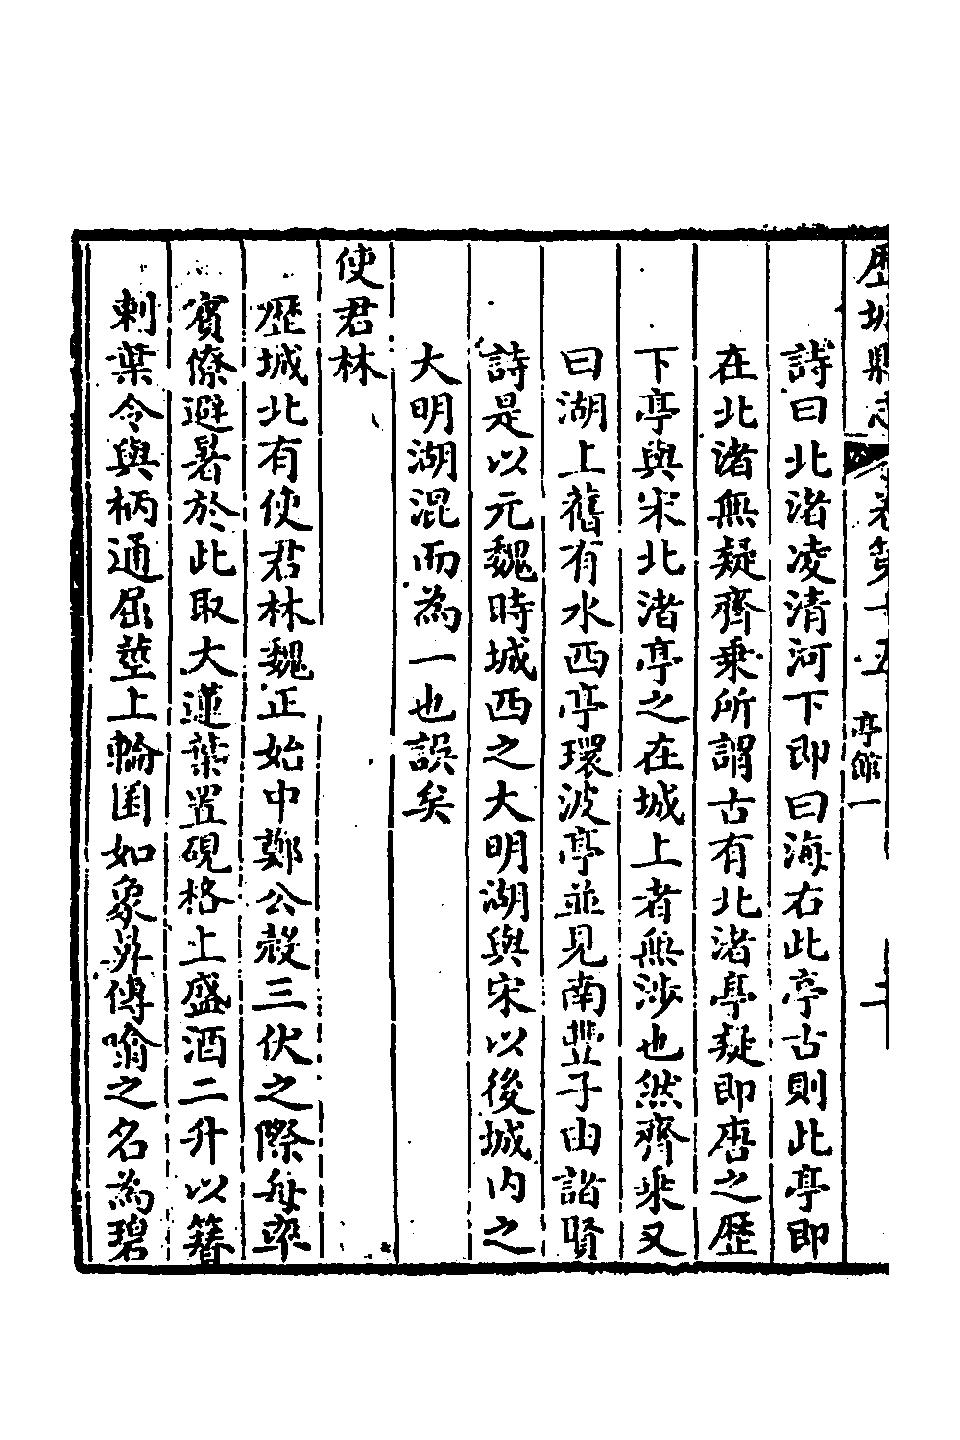 歷城縣志 卷第十五 亭館一 二
詩曰北渚凌清河下即曰海右此亭古則此亭即
在北渚無疑齊乗所謂古有北渚亭疑即唐之歷
下亭與宋北渚亭之在城上者無涉也然齊乗又
曰湖上舊有水西亭環波亭並見南豐子由諸賢
詩是以元魏時城西之大明湖與宋以後城内之
大明湖混而為一也誤矣
使君林
歷城北有使君林魏正始中鄭公慤三伏之際每率
賓僚避暑於此取大蓮葉置硯格上盛酒二升以簪
刺葉令與柄通屈莖上輪囷如象鼻傳噏之名為碧